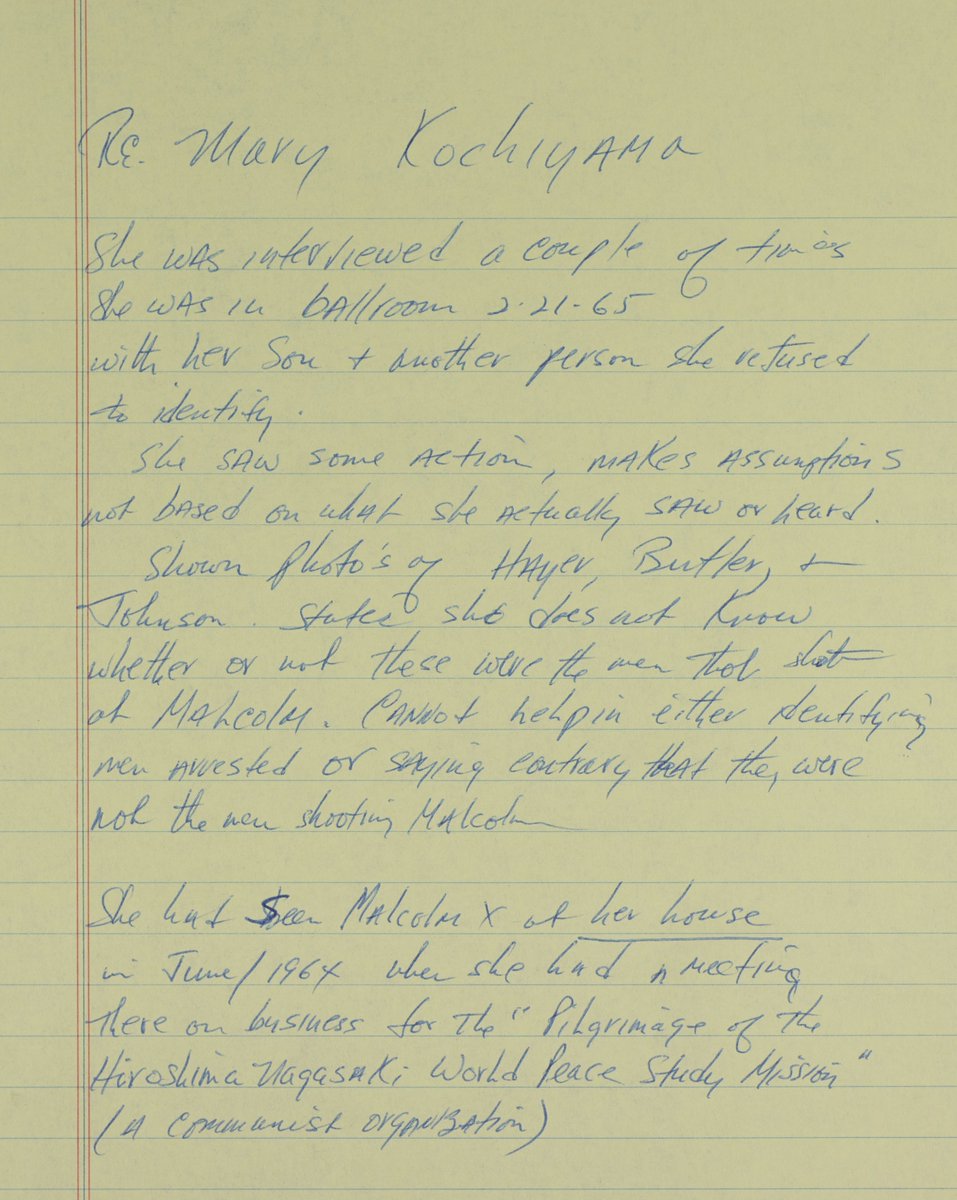 RE. Mary Kochiyama
She was interviewed a couple of times
She was in ballroom 2-21-65
with her Son + another person she refused
to identify.
She saw some action, makes assumptions
not based on what she actually saw or heard.
Shown photo's of Hayer, Butler, +
Johnson. States she does not know
whether or not these were the men that shot
at Malcolm. Cannot help in either identifying
men arrested or saying contrary that they were
not the men shooting Malcolm
She had seen Malcolm X at her house
in June/1964 when she had a meeting
there on business for the "Pilgrimage of the
Hiroshima Nagasaki World Peace Study Mission"
(a communist organization)